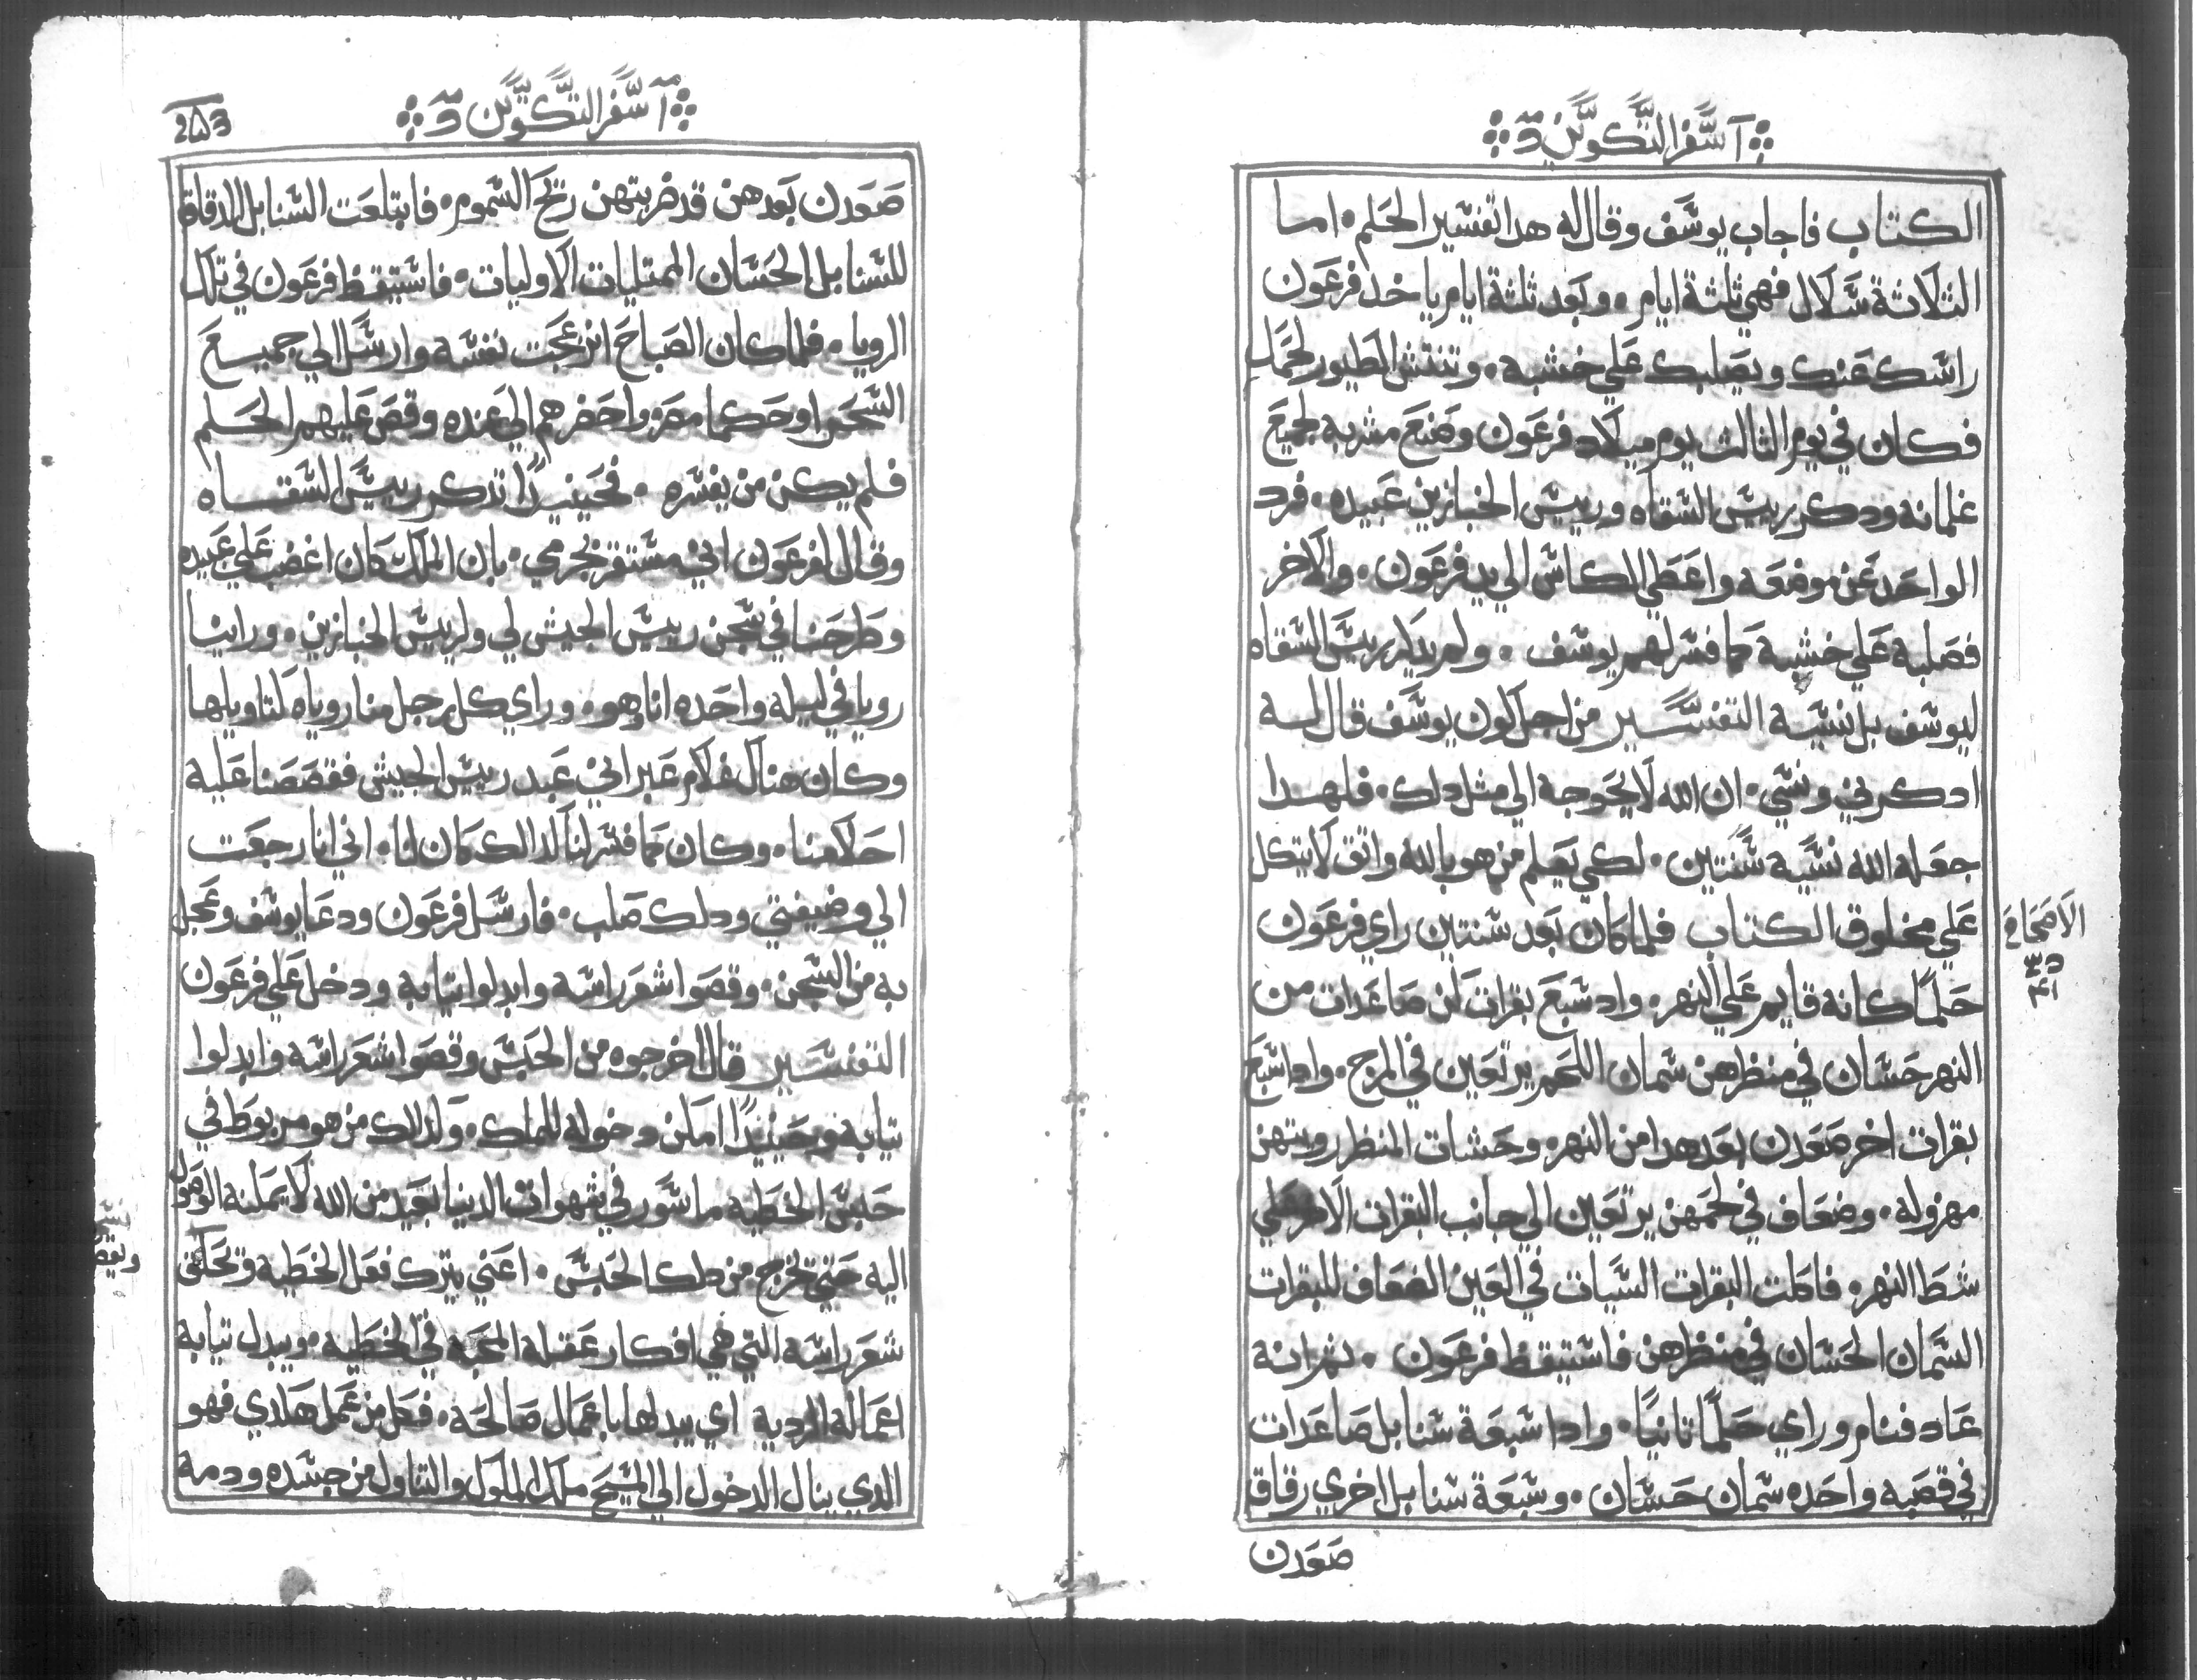 سفر التكوين
الكتاب فاجاب يوسف وقال له هدا تفسير الحلم. اما
الثلاثة سلال فهي ثلثة ايام. وبعد ثلثة ايام ياخد فرعون
راسك عنك ويصلبك علي خشبه. وتنتش الطيور لحمك
فكان في يوم الثالث يوم ميلاد فرعون وصنع مشربه لجميع
غلمانه ودكر رييس السقاه ورييس الخبازين عبيده. فرد
الواحد عن موضعه واعطي الكاس الي يد فرعون. والاخر
فصلبه علي خشبة كما فسر لهم يوسف. ولم يدكر رييس السقاه
ليوسف بل نسيه التفسير من اجل كون يوسف قال له
ادكرني ونسي. ان الله لا يحوجه الي مثل دلك. فلهدا
جعله الله نسيه سنتين. لكي يعلم من هو بالله واثق لا يتكل
علي مخلوق الكتاب فلما كان بعد سنتين راي فرعون
حلمًا كانه قايم علي النهر. واد سبع بقرات كن صاعدات من
النهر حسان في منظرهن سمان اللحم يرتعين في المرج. وادا سبع
بقرات اخر صعدن بعد هدا من النهر. وحشات المنظر رويتهن
مهزوله. وضعاف في لحمهن يرتعين الي جانب البقرات الاخر علي
شط النهر. فاكلت البقرات السيات في العين الضعاف للبقرات
السمان الحسان في منظرهن فاستيقظ فرعون. ثم انه
عاد فنام وراي حلمًا ثانيًا. وادا سبعة سنابل صاعدات
في قصبه واحده سمان حسان. وسبعة سنابل اخري رقاق
صعدن
الاصحاح
٤١
سفر التكوين
صعدن بعدهن قد ضربتهن ريح السموم. فابتلعت السنابل الدقاق
للسنابل الحسان الممتليات الاوليات. فاستيقظ فرعون في تلك
الرويا. فلما كان الصباح انزعجت نفسه وارسل الي جميع
السحرا وحكما مصر واحضرهم الي عنده وقص عليهم الحلم
فلم يكن من يفسره. فحينيدًا تدكر رييس السقاه
وقال لفرعون اني مستقر بجرمي. بان الملك كان اغضب علي عبيده
وطرحنا في سجن رييس الجيش لي ولرييس الخبازين. وراينا
رويا في ليله واحده انا وهو. وراي كل رجل منا روياه لتاويلها
وكان هناك غلام عبراني عبد رييس الجيش فقصصنا عليه
احلامنا. وكان كما فسر لنا كدالك كان لنا. اني انا رجعت
الي وضيفتي ودلك صلب. فارسل فرعون ودعا يوسف وعجل
به من السجن. وقصوا شعر راسه وابدلوا تيابه ودخل علي فرعون
التفسير قال اخرجوه من الحبس وقصوا شعر راسه وابدلوا
تيابه وحينيدًا امكن دخوله للملك. وكدلك من هو مربوط في
حبس الخطيه ماسور في شهوات الدنيا بعيد من الله لا يمكنه الوصول
اليه حتي يخرج من دلك الحبس. اعني يترك فعل الخطيه وتحلق
شعر راسه التي هي افكار عقله المحبه في الخطيه. ويبدل تيابه
اعماله الرديه اي يبدلها باعمال صالحه. فكل من عمل هكدي فهو
الدي ينال الدخول الي المسيح ملك الملوك والتناول من جسده ودمه